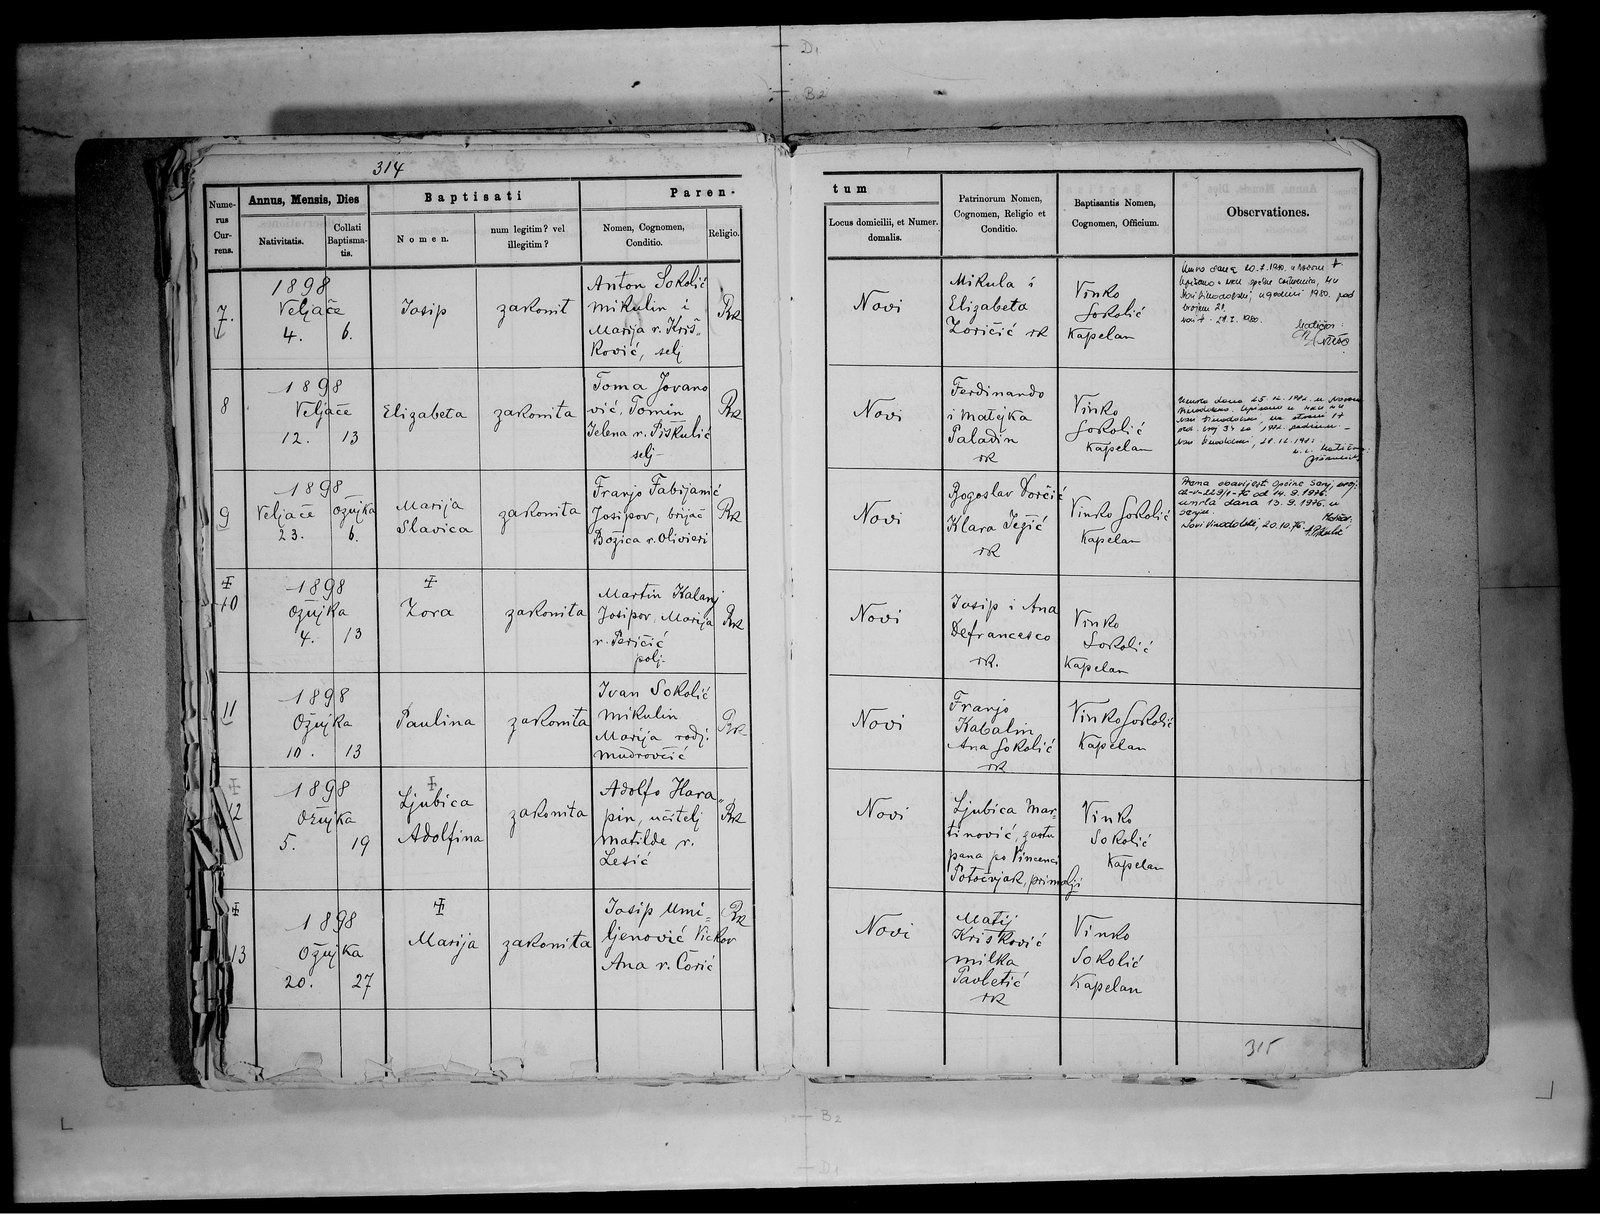 314
Nume-
rus
Cur-
rens.
Annus, Mensis, Dies
Nativitatis.
Collati
Baptisma-
tis.
Baptisati
Nomen.
num legitim? vel
illegitim?
Paren-
Nomen, Cognomen,
Conditio.
Religio.
tum
Locus domicilii, et Numer.
domalis.
Patrinorum Nomen,
Cognomen, Religio et
Conditio.
Baptisantis Nomen,
Cognomen, Officium.
Observationes.
7.
1898
Veljače
4. 6.
Josip
zakonit
Anton Sokolić
Mikulin i
Marija r. Kriš-
ković, selj
Rk
Novi
Mikula i
Elizabeta
Zoričić rk
Vinko
Sokolić
Kapelan
8
1898
Veljače
12. 13
Elizabeta
zakonita
Toma Jovano
vić, Tomin
Jelena r. Piškulić
selj-
Rk
Novi
Ferdinando
i Matejka
Paladin
rk
Vinko
Sokolić
Kapelan
9
1898
Veljače Ožujka
23. 6.
Marija
Slavica
zakonita
Franjo Fabijanić
Josipov, brijač
Božica r. Olivieri
Rk
Novi
Bogoslav Vorčić
Klara Ježić
rk
Vinko Sokolić
Kapelan
Prema obavijest Općine Senj, broj:
od 14.9.1976.
umrla dana 13.9.1976. u
Senju.
Novi Vinodolski, 20.10.76.
10
1898
Ožujka
4. 13
Zora
zakonita
Martin Kalanj
Josipov, Marija
r. Peričić
polj-
Rk
Novi
Josip i Ana
Defrancesco
rk.
Vinko
Sokolić
Kapelan
11
1898
Ožujka
10. 13
Paulina
zakonita
Ivan Sokolić
Mikulin
Marija rodj.
Mudrovčić
Rk
Novi
Franjo
Kabalin
Ana Sokolić
rk
Vinko Sokolić
Kapelan
12
1898
Ožujka
5. 19
Ljubica
Adolfina
zakonita
Adolfo Hara
pin, učitelj
Matilde r.
Lesić
Rk
Novi
Ljubica Mar-
tinović, zastu
pana po Vincenci
Potočnjak, primalji
Vinko
Sokolić
Kapelan
13
1898
Ožujka
20. 27
Marija
zakonita
Josip Umi=
ljenović Vickov
Ana r. Ćorić
Rk
Novi
Matij
Krišković
Milka
Pavletić
rk
Vinko
Sokolić
Kapelan
315